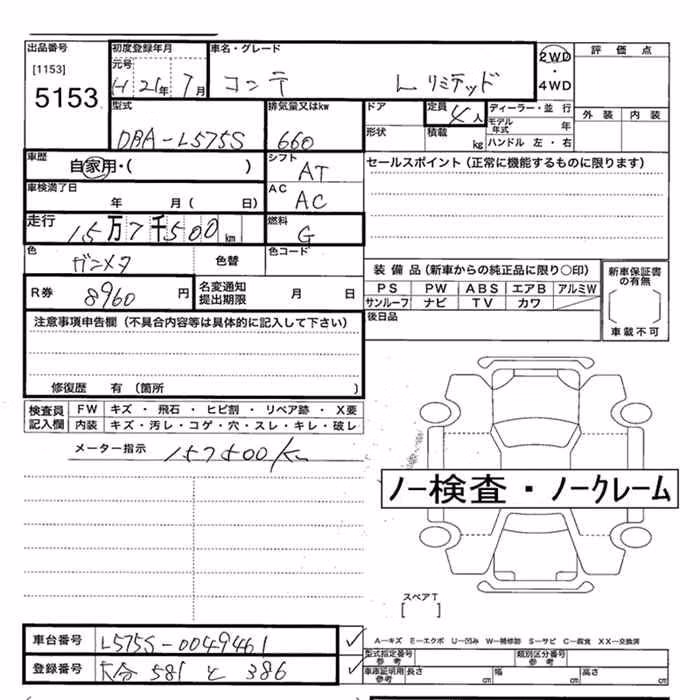 出品番号 初度登録年月 車名・グレード 2WD 評価点
[1153] 元号 ・
5153 H 21年 7月 コンテ L リミテッド 4WD 外装 内装
型式 排気量又はkw ドア 定員 4人 ディーラー・並行
DBA-L575S 660 形状 積載 kg モデル年式 年
ハンドル 左・右
車歴 自家用・( ) シフト AT セールスポイント (正常に機能するものに限ります)
車検満了日 年 月 ( 日) AC AC
走行 15万7千500km 燃料 G
色 ガンメタ 色替 色コード 装備品 (新車からの純正品に限り○印) 新車保証書の有無
R券 8960円 名変通知提出期限 月 日 PS PW ABS エアB アルミW
サンルーフ ナビ TV カワ
後日品 車載不可
注意事項申告欄 (不具合内容等は具体的に記入して下さい)
修復歴 有 (箇所 )
検査員 FW キズ・飛石・ヒビ割・リペア跡・X要
記入欄 内装 キズ・汚レ・コゲ・穴・スレ・キレ・破レ
メーター指示 157500Km
ノー検査・ノークレーム
スペアT
[ ]
車台番号 L575S-0049461 A-キズ E-エクボ U-凹み W-補修跡 S-サビ C-腐食 XX-交換済
型式指定番号 参考 類別区分番号 参考
登録番号 大分 581 と 386 車庫証明用 参考 長さ cm 幅 cm 高さ cm